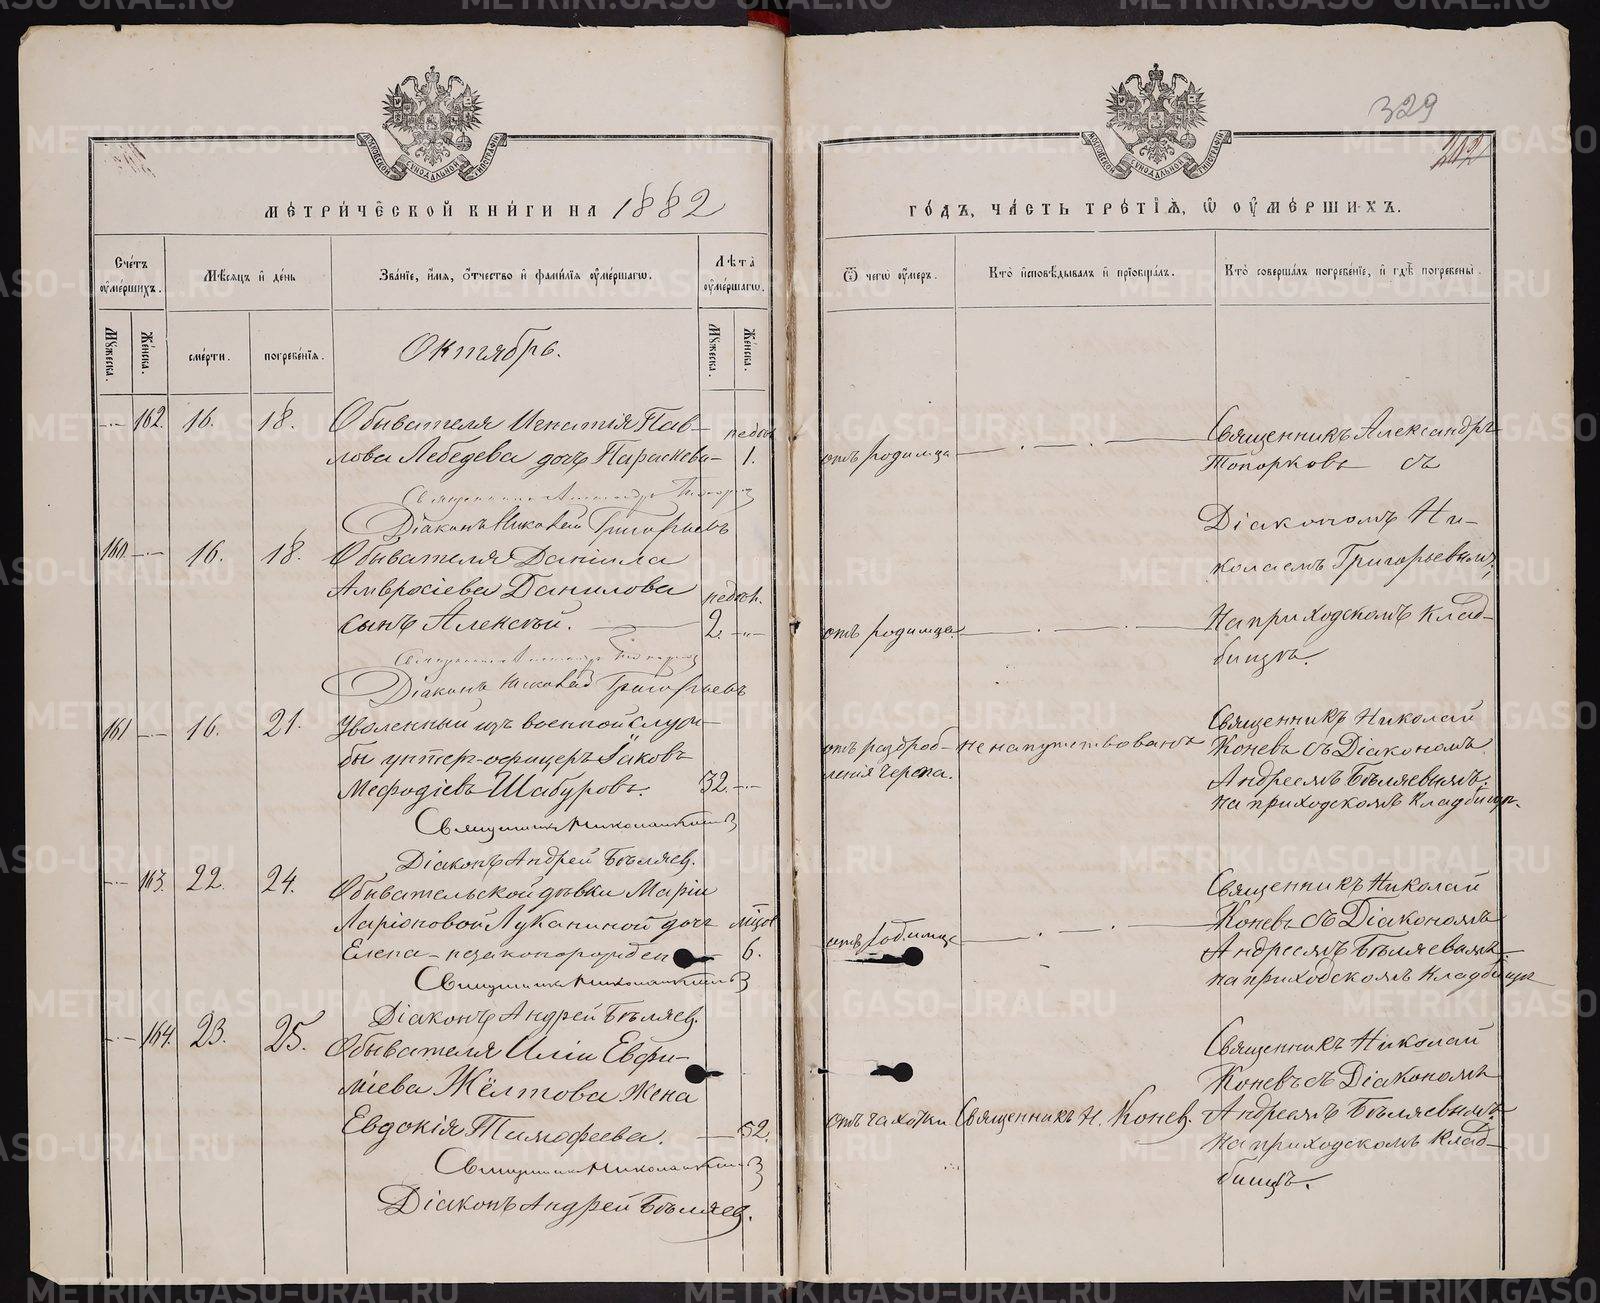 329
МОСКОВСКОЙ СУНОДАЛЬНОЙ ТИПОГРАФІИ
МОСКОВСКОЙ СУНОДАЛЬНОЙ ТИПОГРАФІИ
МЕТРИЧЕСКОЙ КНИГИ НА 1882
ГОДЪ, ЧАСТЬ ТРЕТІЯ, Ѡ ОУМЕРШИХЪ.
Счетъ оумершихъ.
Мѣсяцъ и день
Званіе, имя, отчество и фамилія оумершагω.
Лѣта оумершагω.
Ѿ чегω оумеръ.
Кто исповѣдывалъ и пріобщалъ.
Кто совершалъ погребеніе, и гдѣ погребены.
Мꙋжеска.
Женска.
смерти.
погребенія.
Мꙋжеска.
Женска.
Октябрь.
162. 16. 18. Обывателя Игнатія Пав-
лова Лебедева дочь Параскева- 1.
отъ родимца
Священникъ Александръ
Топорковъ съ
Діакономъ Ни-
колаемъ Григорьевымъ,
На приходскомъ клад-
бищѣ.
Діаконъ Николай Григорьевъ
160. 16. 18. Обывателя Даніила
Амвросіева Данилова
сынъ Алексѣй. 2.
отъ родимца
Діаконъ Николай Григорьевъ
161 16. 21. Уволенный изъ военной служ-
бы унтеръ-офицеръ Іаковъ
Мефодіевъ Шабуровъ. 32.
отъ раздроб-
ленія черепа.
не напутствованъ
Священникъ Николай
Коневъ съ Діакономъ
Андреемъ Бѣляевымъ.
на приходскомъ кладбищѣ.
Діаконъ Андрей Бѣляевъ.
163. 22. 24. Обывательской дѣвки Маріи
Ларіоновой Луканиной дочь
Елена - незаконорожден 6.
отъ родимца
Священникъ Николай
Коневъ съ Діакономъ
Андреемъ Бѣляевымъ
на приходскомъ кладбищѣ
Діаконъ Андрей Бѣляевъ.
164. 23. 25. Обывателя Иліи Евфи-
міева Жёлтова жена
Евдокія Тимофеева. 52.
отъ чахотки
Священникъ Н. Коневъ.
Священникъ Николай
Коневъ съ Діакономъ
Андреемъ Бѣляевымъ
на приходскомъ клад-
бищѣ.
Діаконъ Андрей Бѣляевъ.
METRIKI.GASO-URAL.RU